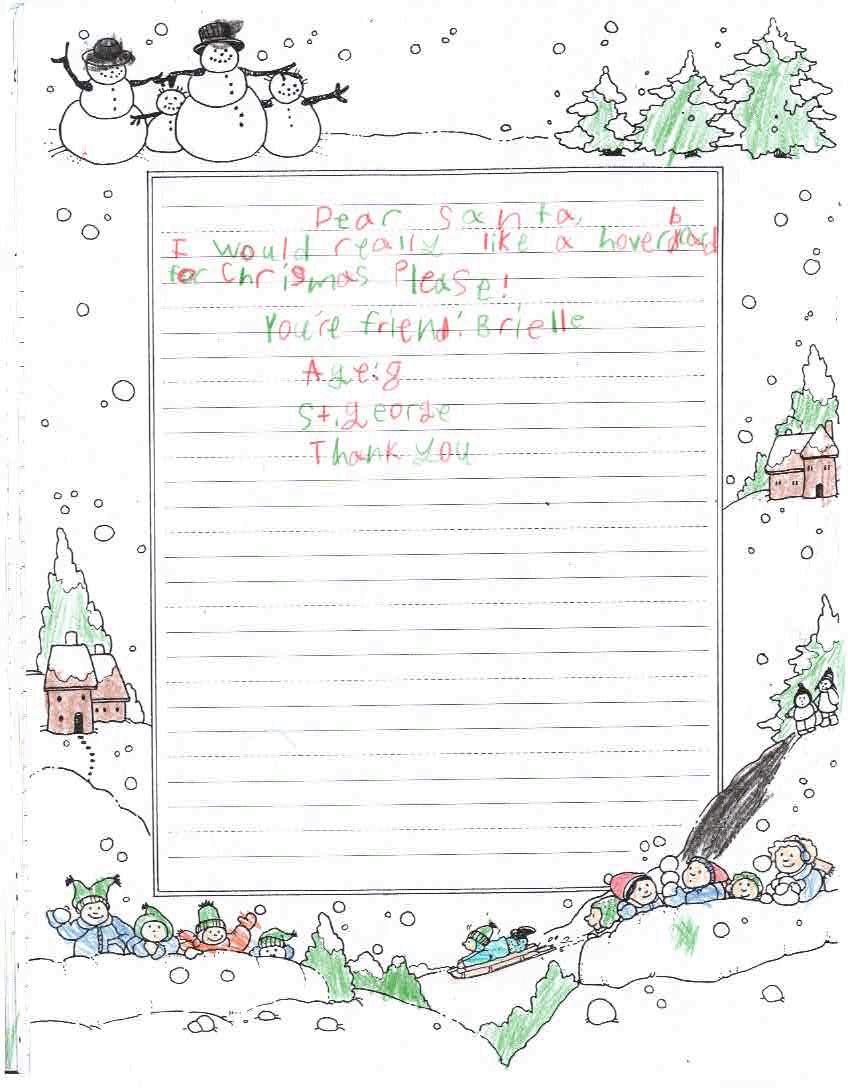 Dear Santa,
I would really like a hoverboard
for Chrismas Please!
You're friend: Brielle
Age: 8
St. george
Thank you